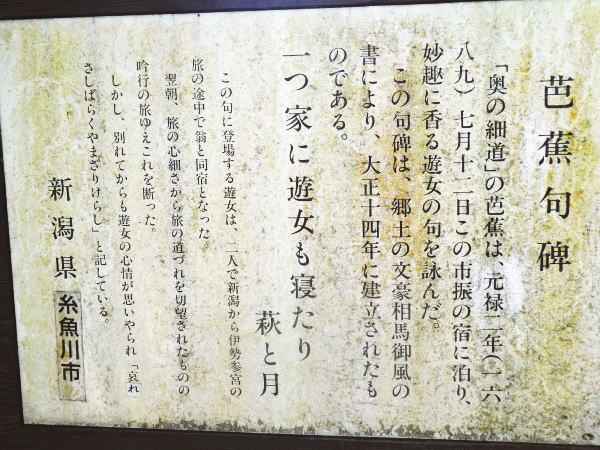 芭蕉句碑
「奥の細道」の芭蕉は、元禄二年(一六
八九)七月十二日この市振の宿に泊り、
妙趣に香る遊女の句を詠んだ。
この句碑は、郷土の文豪相馬御風の
書により、大正十四年に建立されたも
のである。
一つ家に遊女も寝たり
萩と月
この句に登場する遊女は、二人で新潟から伊勢参宮の
旅の途中で翁と同宿となった。
翌朝、旅の心細さから旅の道づれを切望されたものの
吟行の旅ゆえこれを断った。
しかし、別れてからも遊女の心情が思いやられ「哀れ
さしばらくやまざりけらし」と記している。
新潟県 糸魚川市